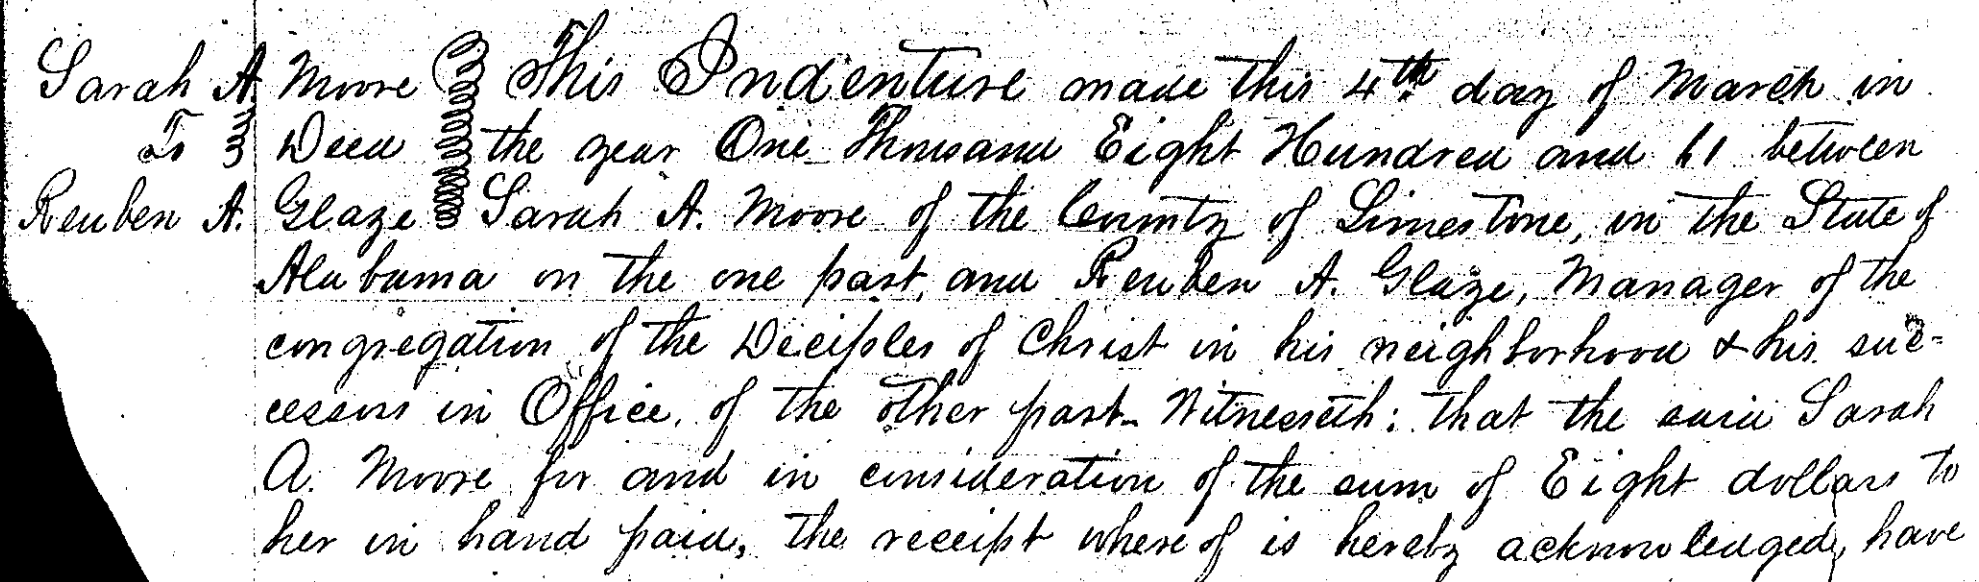 Sarah A. Moore This Indenture made this 4th day of March in
To Deed the year One Thousand Eight Hundred and 61 between
Reuben A. Glaze Sarah A. Moore of the County of Limestone, in the State of
Alabama on the one part, and Reuben A. Glaze, Manager of the
congregation of the Deciples of Christ in his neighborhood & his suc-
cessors in Office, of the other part- Witnesseth: that the said Sarah
A. Moore for and in consideration of the sum of Eight dollars to
her in hand paid, the receipt where of is hereby acknowledged, have